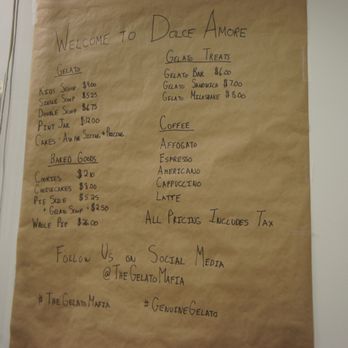 Welcome to Dolce Amore
Gelato
Kids Scoop $4.00
Single Scoop $5.25
Double Scoop $6.75
Pint Jar $12.00
Cakes: Ask for Sizing + Pricing
Baked Goods
Cookies
Cheesecakes
Pie Slice $5.25
+ Gelato Scoop + $2.50
Whole Pie
Gelato Treats
Gelato Bar $6.00
Gelato Sandwich $7.00
Gelato Milkshake $8.00
Coffee
Affogato
Espresso
Americano
Cappuccino
Latte
All Pricing Includes Tax
Follow Us on Social Media
@TheGelatoMafia
#TheGelatoMafia
#GenuineGelato